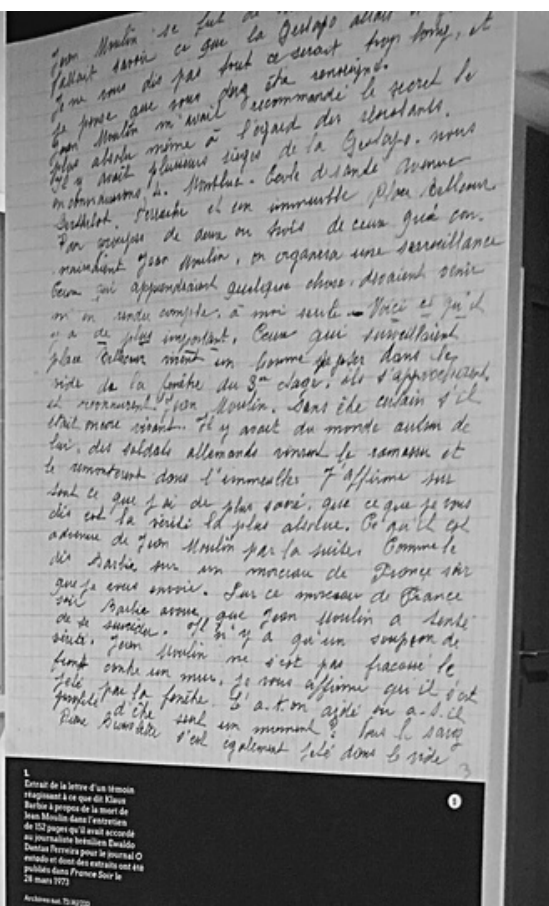 Jean Moulin se fut de
fallait savoir ce que la Gestapo allait
Je ne vous dis pas tout ce serait trop long, et
je pense que vous déjà été renseigné.
Jean Moulin m'avait recommandé le secret le
plus absolu même à l'égard des résistants.
Il y avait plusieurs sièges de la Gestapo. nous
en connaissions, 4. Montluc. Ecole de santé Avenue
Berthelot. Perrache et un immeuble Place Bellecour
Par groupes de deux ou trois de ceux qui con-
naissaient Jean Moulin, on organisa une surveillance
Ceux qui apprendraient quelque chose, devaient venir
m'en rendre compte, à moi seule - Voici ce qu'il
y a de plus important. Ceux qui surveillaient
place Bellecour virent un homme se jeter dans le
vide de la fenêtre du 3me étage. ils s'approchèrent
et reconnurent Jean Moulin. Sans être certain s'il
était encore vivant. Il y avait du monde autour de
lui, des soldats allemands vinrent le ramasser et
le remontèrent dans l'immeuble. J'affirme sur
tout ce que j'ai de plus sacré, que ce que je vous
dis est la vérité la plus absolue. Ce qu'il est
advenu de Jean Moulin par la suite. Comme le
dis Barbie sur un morceau de France soir
que je vous envoie. Sur ce morceau de France
soir Barbie avoue, que Jean Moulin a tenté
de se suicider. Il n'y a qu'un soupçon de
vérité. Jean Moulin ne s'est pas fracassé le
front contre un mur. je vous affirme qu'il s'est
jeté par la fenêtre. L'a-t-on aidé ou a-t-il
profité d'être seul un moment? Tous le savez
Pierre Brossolette s'est également jeté dans le vide
3
1.
Extrait de la lettre d'un témoin
réagissant à ce que dit Klaus
Barbie à propos de la mort de
Jean Moulin dans l'entretien
de 152 pages qu'il avait accordé
au journaliste brésilien Ewaldo
Dantas Ferreira pour le journal O
estado et dont des extraits ont été
publiés dans France Soir le
28 mars 1973
Archives nat.
1